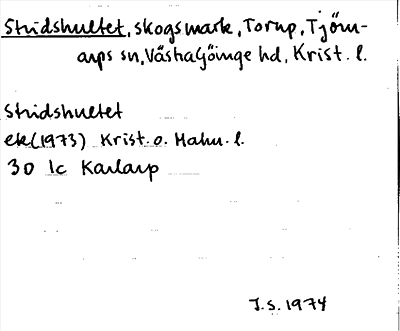 Stridshultet, skogsmark, Torup, Tjörn-
arps sn, Västra Göinge hd, Krist. l.
Stridshultet
ek (1973) Krist. o. Malm. l.
30 1c Karlarp
J.S. 1974